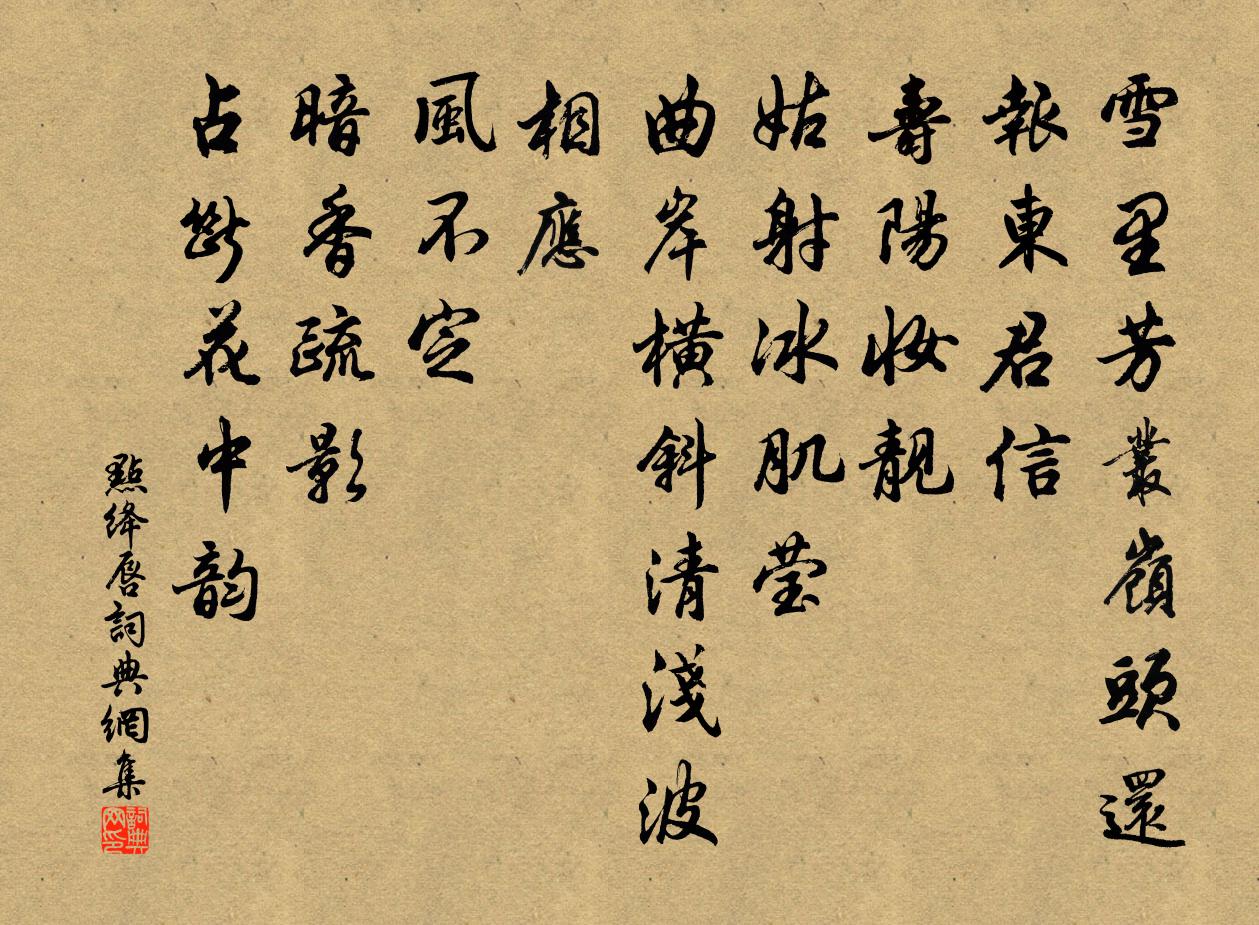 雪里芳叢嶺頭還
報東君信
壽陽妝靚
姑射冰肌莹
曲岸橫斜清淺波
相應
風不定
暗香疏影
占斷花中韵
點絳唇詞典網集
詞典网印